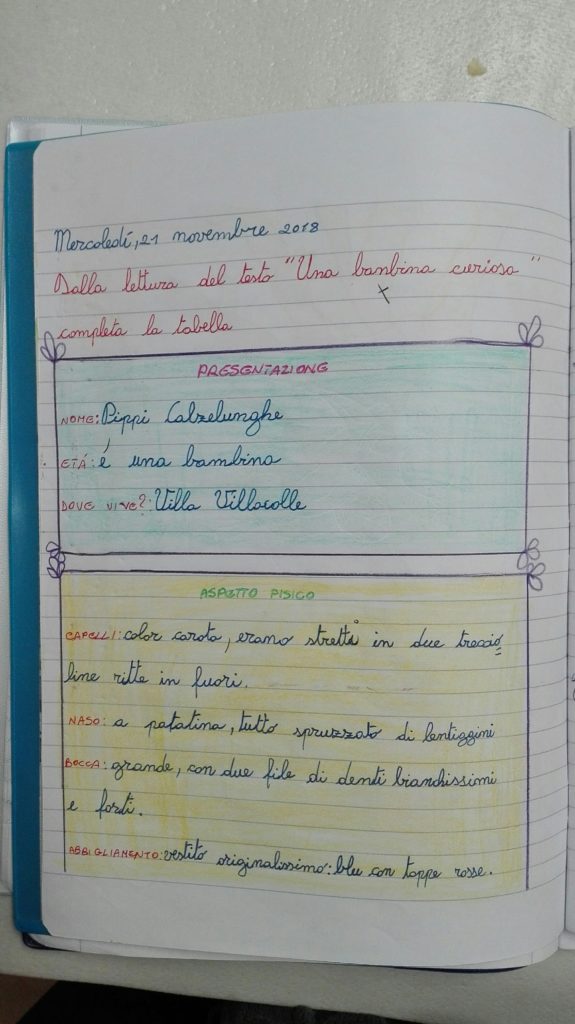 Mercoledí, 21 novembre 2018
Dalla lettura del testo "Una banbina curiosa"
completa la tabella
PRESENTAZIONE
NOME: Pippi Calzelunghe
ETÁ: é una bambina
DOVE VIVE?: Villa Villacolle
ASPETTO FISICO
CAPELLI: color carota, erano stretti in due treccio
line ritte in fuori.
NASO: a patatina, tutto spruzzato di lentiggini
BOCCA: grande, con due file di denti bianchissimi
e forti.
ABBIGLIAMENTO: vestito originalissimo: blu con toppe rosse.